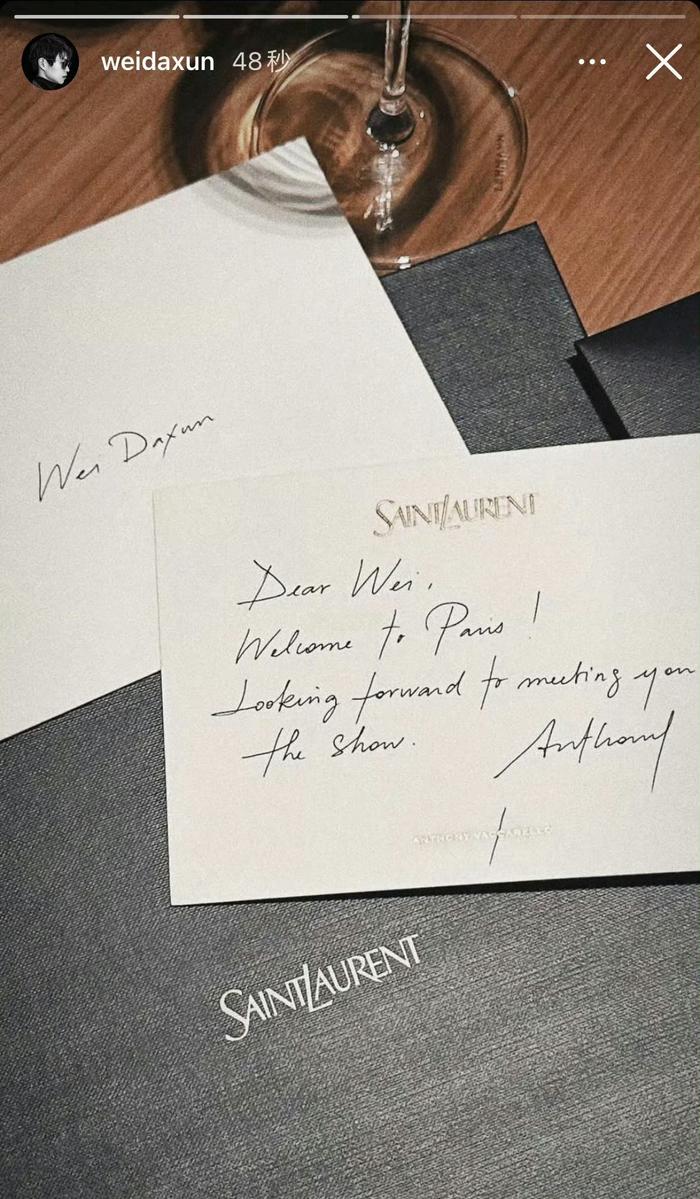 weidaxun 48秒
Wei Daxun
SAINT LAURENT
Dear Wei,
Welcome to Paris!
Looking forward to meeting you
the show.
Anthony
ANTHONY VACCARELLO
SAINT LAURENT